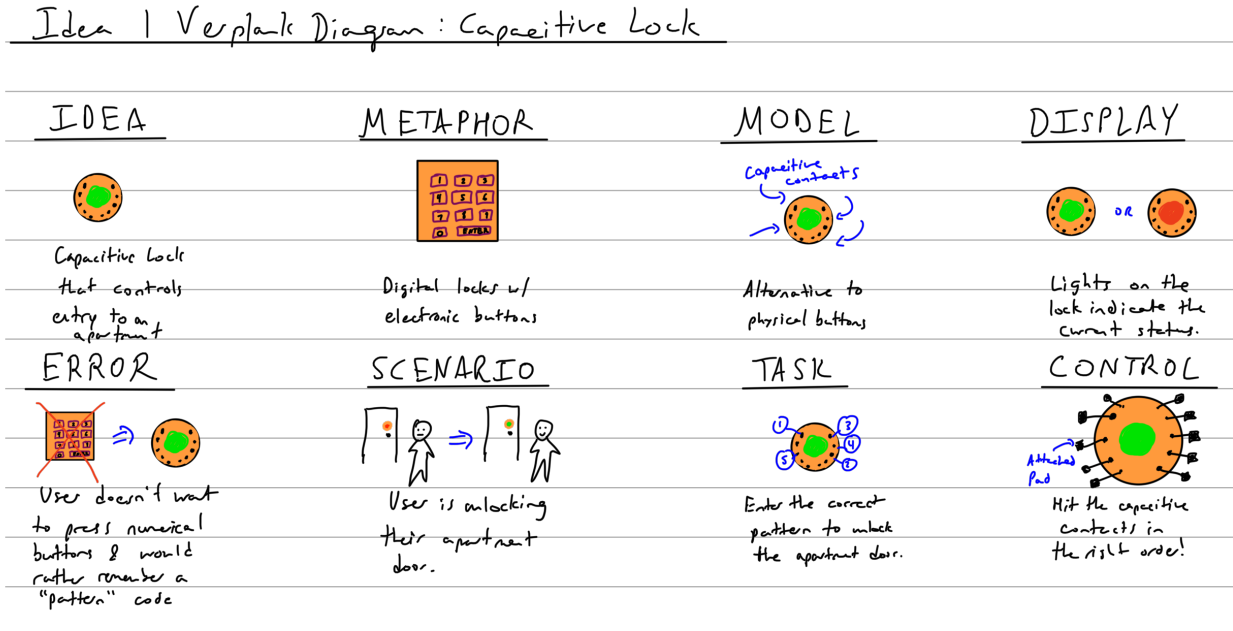 Idea 1 Verplank Diagram: Capacitive Lock
IDEA
Capacitive Lock
that controls
entry to an
apartment
METAPHOR
1 2 3
4 5 6
7 8 9
0 ENTER
Digital locks w/
electronic buttons
MODEL
Capacitive
contacts
Alternative to
physical buttons
DISPLAY
OR
Lights on the
lock indicate the
current status.
ERROR
User doesn't want
to press numerical
buttons & would
rather remember a
"pattern" code
SCENARIO
User is unlocking
their apartment
door.
TASK
1 3
4
5 2
Enter the correct
pattern to unlock
the apartment door.
CONTROL
Attached
Pad
Hit the capacitive
contacts in
the right order!